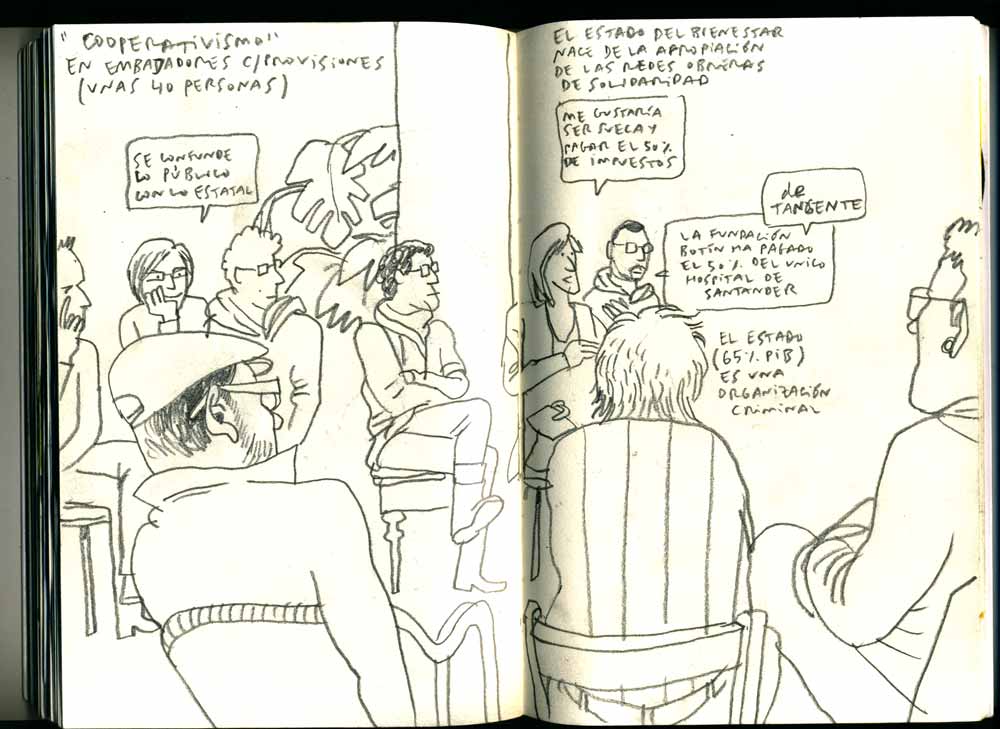 "COOPERATIVISMO"
EN EMBAJADORES C/PROVISIONES
(UNAS 40 PERSONAS)
SE CONFUNDE
LO PÚBLICO
CON LO ESTATAL
EL ESTADO DEL BIENESTAR
NACE DE LA APROPIACIÓN
DE LAS REDES OBRERAS
DE SOLIDARIDAD
ME GUSTARÍA
SER SUECA Y
PAGAR EL 50%
DE IMPUESTOS
de
TANGENTE
LA FUNDACIÓN
BOTÍN HA PAGADO
EL 50% DEL UNICO
HOSPITAL DE
SANTANDER
EL ESTADO
(65% PIB)
ES UNA
ORGANIZACIÓN
CRIMINAL